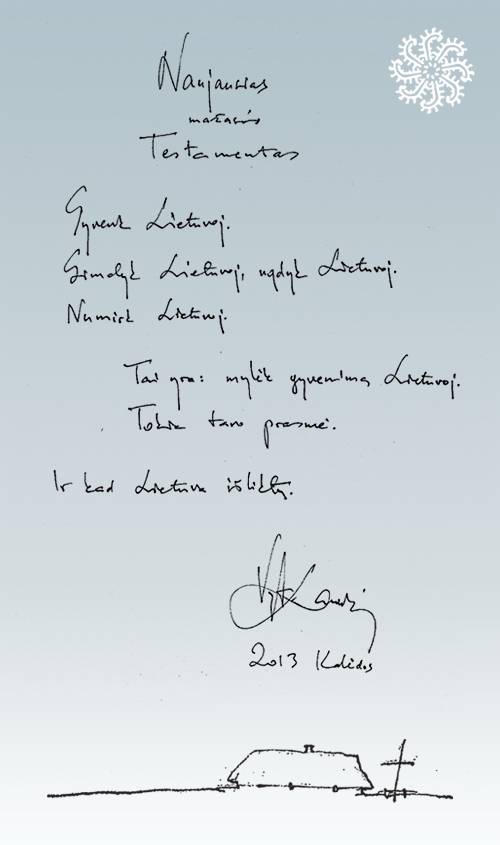 Naujausias
mažasis
Testamentas
Gyvenk Lietuvoj.
Gimdyk Lietuvoj, ugdyk Lietuvoj.
Numirk Lietuvoj.
Tai yra: mylėk gyvenimą Lietuvoj.
Tokia tavo prasmė.
Ir kad Lietuva išliktų.
2013 Kalėdos